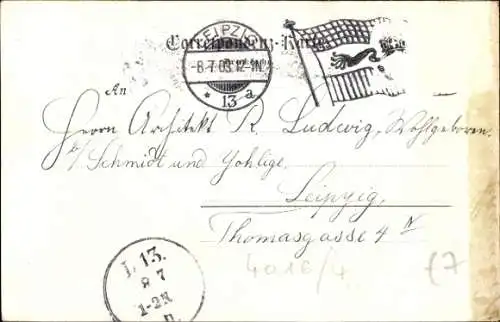 Correspondenz-Karte
LEIPZIG
-8.7.03.12-1N.
* 13 a
An
Herrn Architekt R. Ludwig, Wohlgeboren
b/ Schmidt und Johlige.
Leipzig,
Thomasgasse 4 IV
4016/4
£7
L. 13.
8 7
1-2N
n.